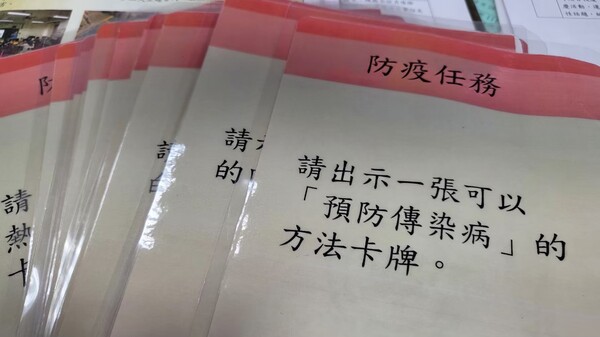 防疫任務
請出示一張可以
「預防傳染病」的
方法卡牌。
請
的
請
請
熱
卡
防